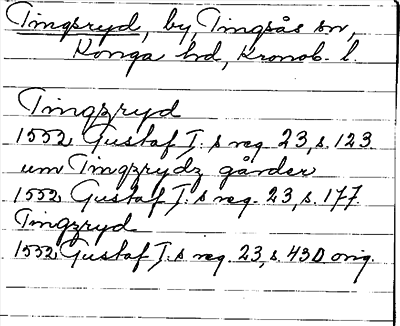 Tingsryd, by, Tingsås sn,
Konga hd, Kronob. l.
Tingzryd
1552 Gustaf I:s reg. 23, s. 123.
um Tingzrydz gårder
1552 Gustaf I:s reg. 23, s. 177.
Tingzryd
1552 Gustaf I:s reg. 23, s. 430 orig.